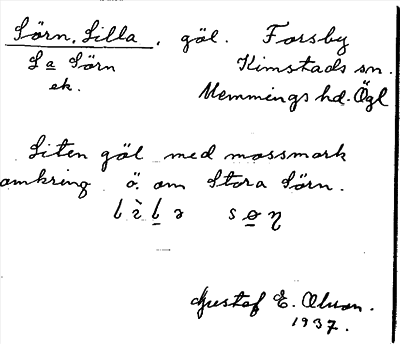 Sörn, Lilla, göl. Forsby
La Sörn Kimstads sn.
ek. Memmings hd. Ögl
Liten göl med mossmark
omkring ö. om Stora Sörn.
Gustaf E. Olson.
1937.